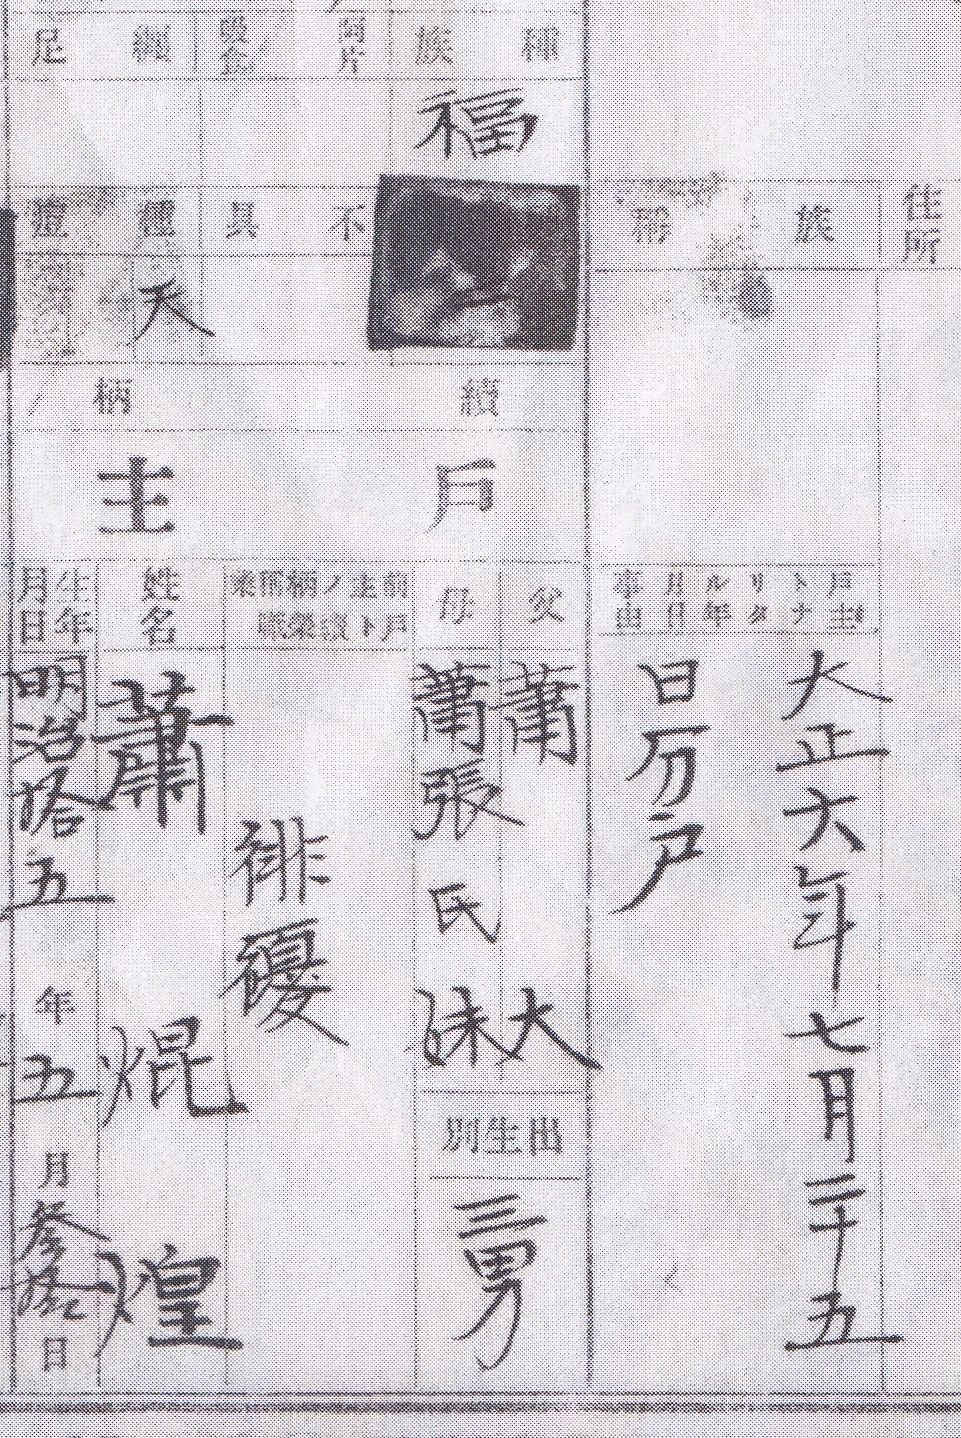 種族
福
阿片吸食
纏足
不具
種痘
天
住所
族稱
續柄
戶主
戶主トナリタル年月日事由
大正六年七月二十五
日分戶
父
蕭
大
母
蕭張氏妹
出生別
三男
徘優
姓名
蕭焜煌
生年月日
明治拾五年五月參拾日